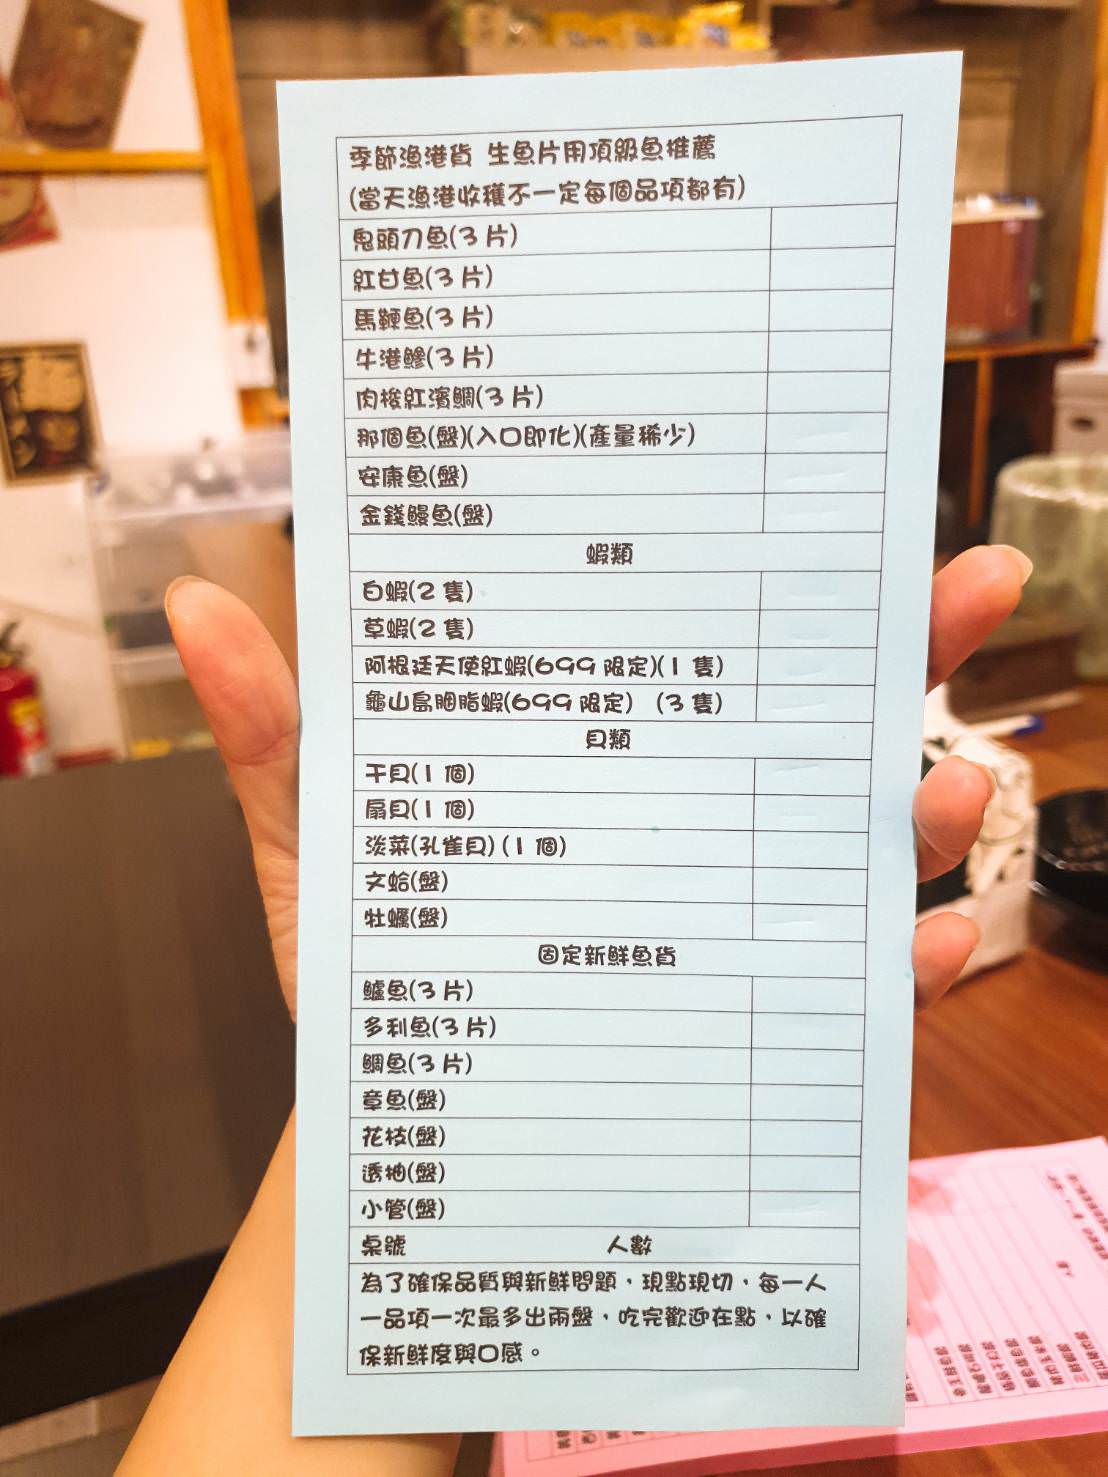 季節漁港貨 生魚片用頂級魚推薦
(當天漁港收穫不一定每個品項都有)
鬼頭刀魚(3片)
紅甘魚(3片)
馬鞭魚(3片)
牛港鰺(3片)
肉梭紅濱鯛(3片)
那個魚(盤)(入口即化)(產量稀少)
安康魚(盤)
金錢鰻魚(盤)
蝦類
白蝦(2 隻)
草蝦(2 隻)
阿根廷天使紅蝦(699 限定)(1 隻)
龜山島胭脂蝦(699 限定) (3 隻)
貝類
干貝(1 個)
扇貝(1 個)
淡菜(孔雀貝)(1 個)
文蛤(盤)
牡蠣(盤)
固定新鮮魚貨
鱸魚(3片)
多利魚(3片)
鯛魚(3片)
章魚(盤)
花枝(盤)
透抽(盤)
小管(盤)
桌號 人數
為了確保品質與新鮮問題，現點現切，每一人
一品項一次最多出兩盤，吃完歡迎在點，以確
保新鮮度與口感。